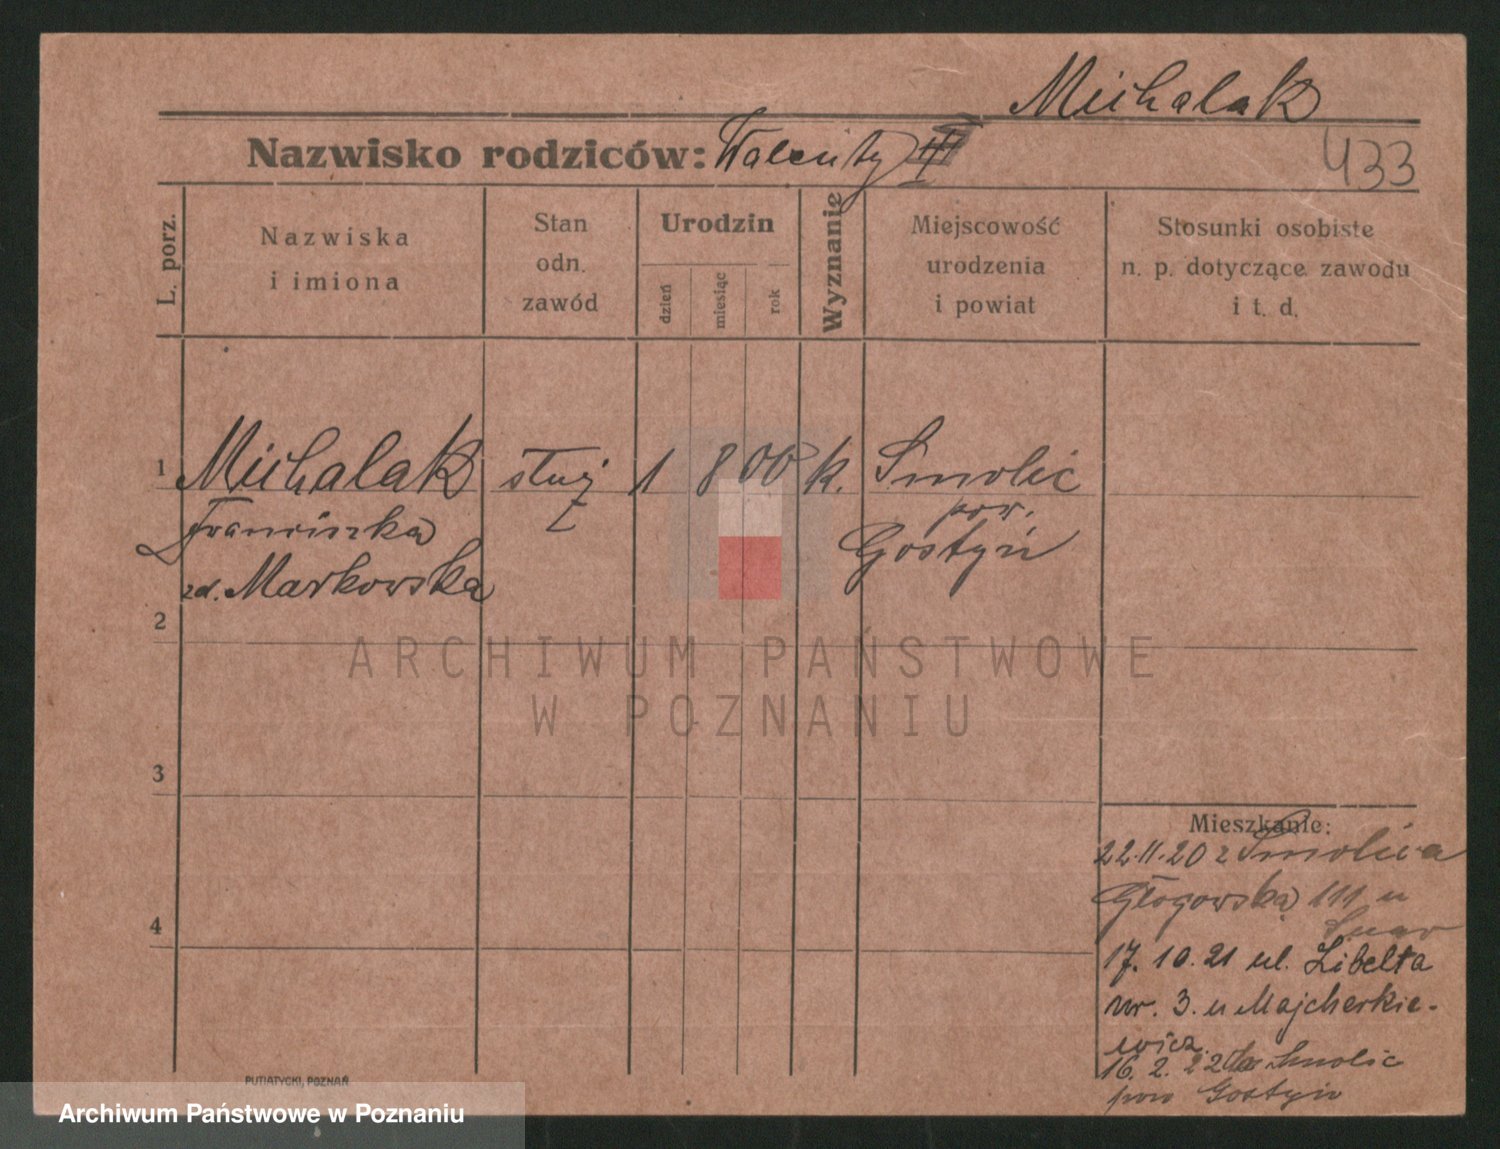 Michalak
Nazwisko rodziców: Walenty
433
L. porz.
Nazwiska
i imiona
Stan
odn.
zawód
Urodzin
dzień
miesiąc
rok
Wyznanie
Miejscowość
urodzenia
i powiat
Stosunki osobiste
n. p. dotyczące zawodu
i t. d.
1
Michalak
służ
1 8 00 k. Smolic
pow.
Gostyń
Franciszka
zd. Markowska
2
3
4
ARCHIWUM PAŃSTWOWE
W POZNANIU
Mieszkanie:
22.11.20 z Smolica
Głogowska 111 u
17. 10. 21 ul. Libelta
nr. 3. u Majcherkie-
wicz.
16. 2. 22 Smolic
pow Gostyń
PUTIATYCKI, POZNAŃ
Archiwum Państwowe w Poznaniu